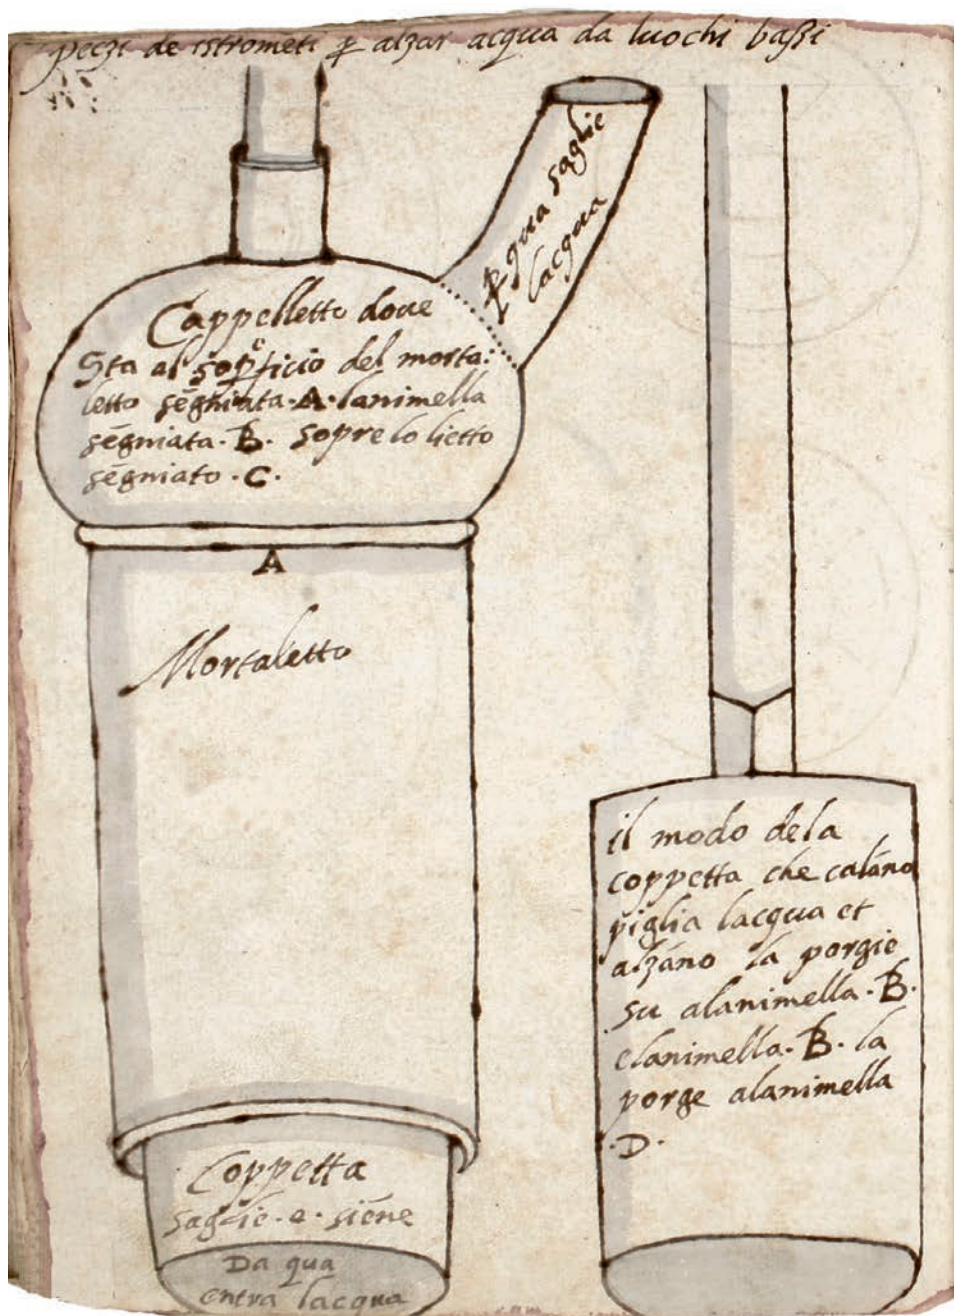 peczi de istrometi ꝑ alzar acqua da luochi baßi
ꝑ qua saglie
lacqua
Cappelletto doue
Sta al soꝑeficio del morta:
letto sēgniata·A·lanimella
sēgniata·B· sopre lo lietto
sēgniato·C·
A
Mortaletto
Coppetta
saglie·e·siēne
Da qua
entra lacqua
il modo dela
coppetta che calāno
piglia lacqua et
alzāno la porgie
su alanimella·B·
elanimella·B·la
porge alanimella
·D·